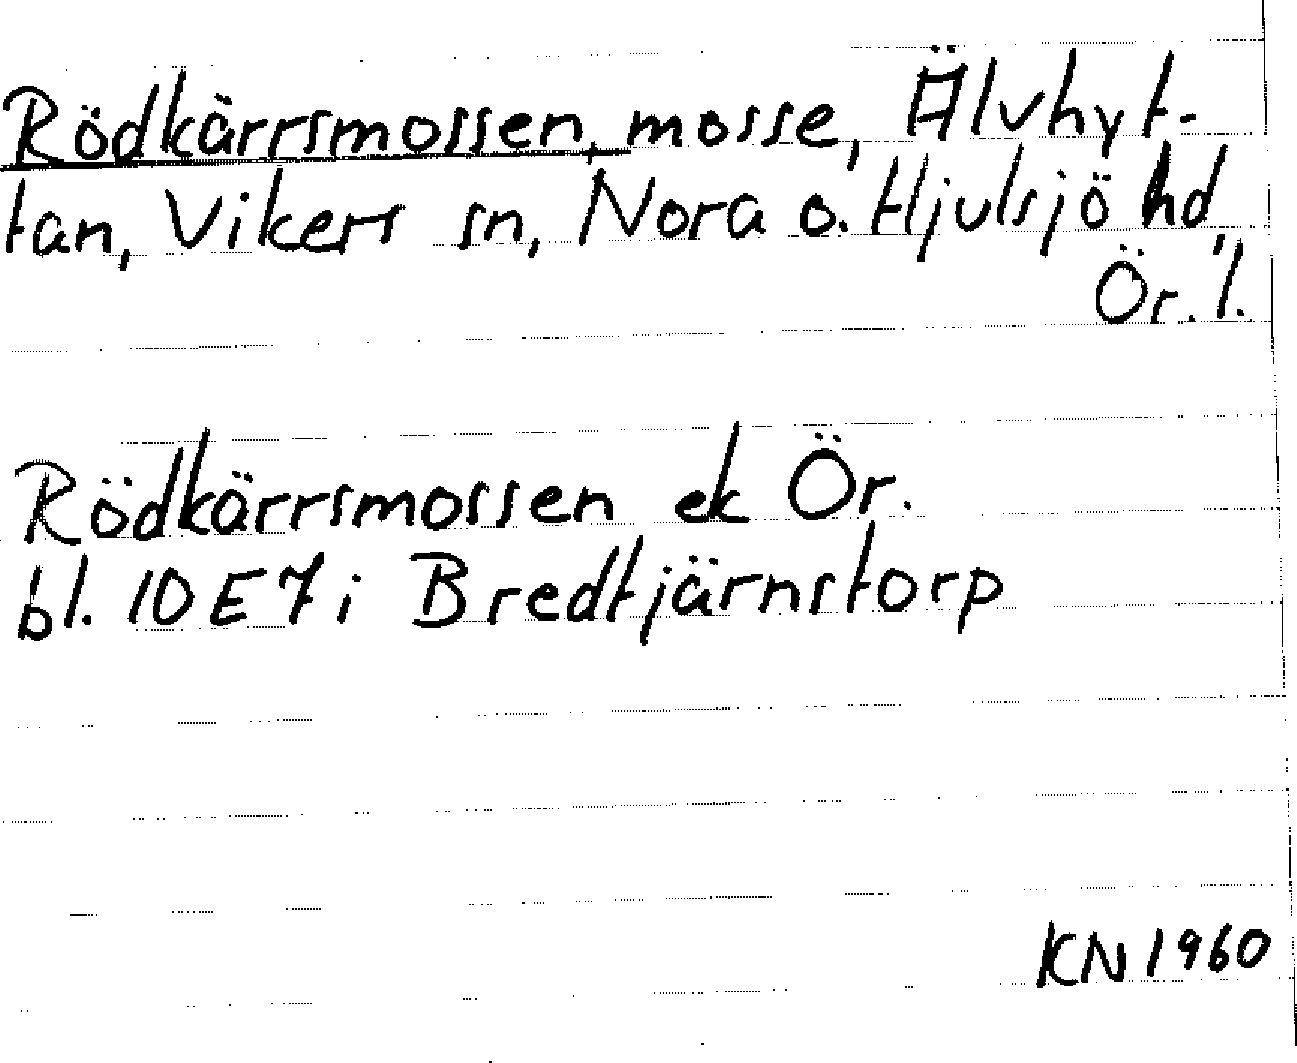 Rödkärrsmossen, mosse, Älvhyt-
tan, Vikers sn, Nora o. Hjulsjö hd,
Ör. l.
Rödkärrsmossen ek Ör.
bl. 10E7i Bredtjärnstorp
KN 1960